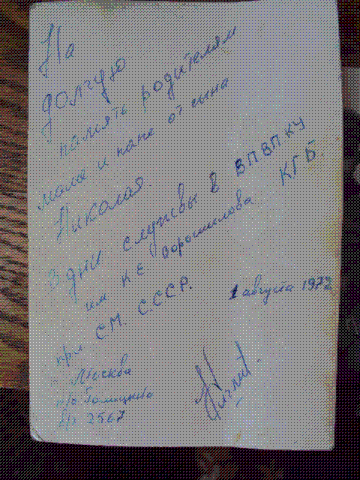 На
долгую
память родителям
маме и папе от сына
Николая.
В дни службы в ВПВПКУ
им К Е Ворошилова КГБ.
при СМ. СССР.
1 августа 1972
г. Москва
п/о Голицино
2567